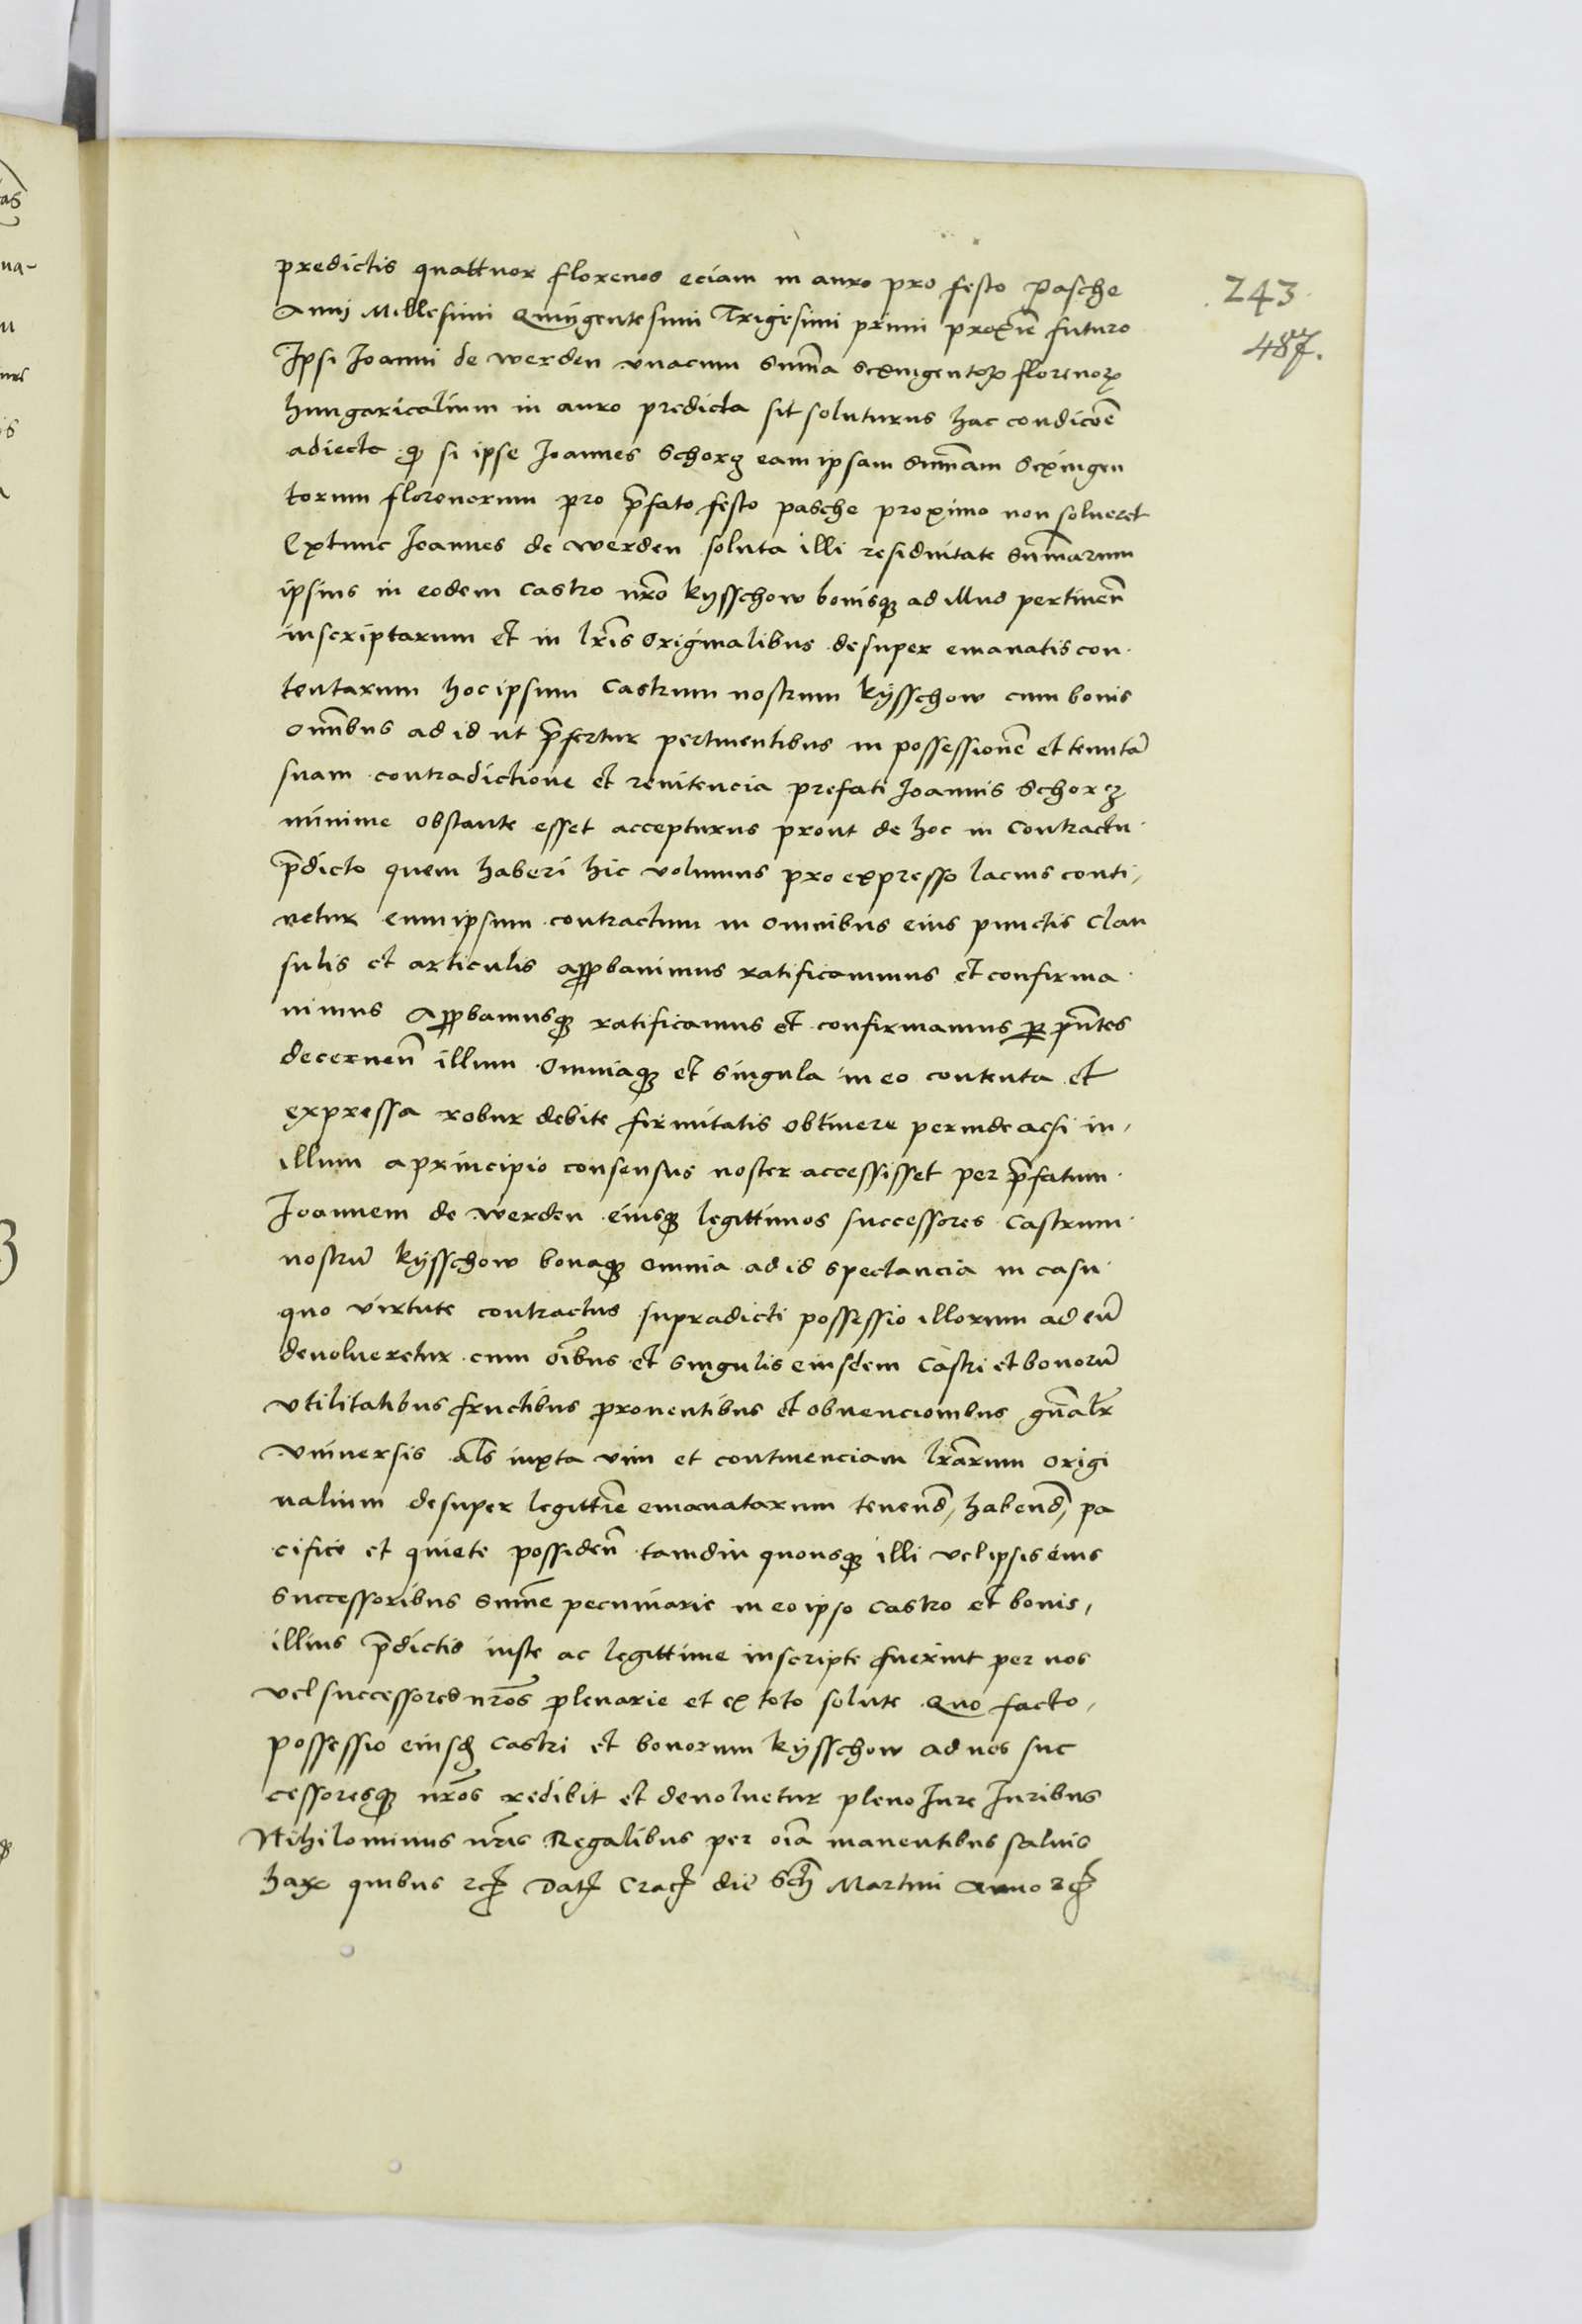 predictis quattuor florenos eciam in auro pro festo Pasche
Annj Millesimi Quingentesimi Trigesimi primi proxīe futuro
Ipsi Ioanni de werden vnacum sum̄a sexingentoꝝ florenoꝝ
hungaricalium in auro predicta sit soluturus hac condicōe
adiecta ꝙ si ipse Ioannes Schorz eam ipsam sum̄am sexingen
torum florenorum pro p̄fato festo pasche proximo non solueret
Extunc Ioannes de werden soluta illi residuitate sum̄arum
ipsius in eodem Castro nr̄o kysschow bonisqȝ ad illud pertinen̄
inscriptarum et in lr̄is originalibus desuper emanatis con
tentarum hoc ipsum Castrum nostrum kÿsschow cum bonis
Omnibus ad id ut p̄fertur pertinentibus in possessionē et tenutā
suam contradictione et renitencia prefati Ioannis Schorz
minime obstante esset accepturus prout de hoc in Contractu
p̄dicto quem haberi hic volumus pro expresso lacius conti,
netur eum ipsum contractum in omnibus eius punctis Clau
sulis et articulis app̱bauimus ratificauimus et confirma
uimus App̱bamusqȝ ratificamus et confirmamus ꝑ pn̄tes
decernen̄ illum Omniaqȝ et singula in eo contenta et
expressa robur debite firmitatis obtinere perinde acsi in,
illum a principio consensus noster accessisset per p̄fatum
Ioannem de werden eiusqȝ legittimos successores Castrum
nostrū kÿsschow bonaqȝ omnia ad id spectancia in casu
quo virtute contractus supradicti possessio illorum ad eū
deuolueretur cum oībus et singulis eiusdem Castri et bonorū
vtilitatibus fructibus prouentibus et obuencionibus gn̄alr̄
vniuersis al̄s iuxta vim et continenciam lrārum origi
nalium desuper legittīe emanatarum tenend̄, habend̄, pa
cifice et quiete possiden̄ tamdiu quousqȝ illi vel ipsis eius
successoribus sum̄e pecuniarie in eo ipso Castro et bonis,
illius p̄dictis iuste ac legittime inscripte fuerint per nos
vel successores nr̄os plenarie et ex toto solute Quo facto,
possessio eiusd̄ Castri et bonorum kÿsschow ad nos suc
cessoresqȝ nr̄os redibit et deuoluetur pleno Iure Iuribus
Nihilominus nr̄is Regalibus per oīa manentibus saluis
haꝝ quibus ꝛcꝭ Datꝭ Cracꝭ die Sctī Martini Anno ꝛcꝭ
243
487.